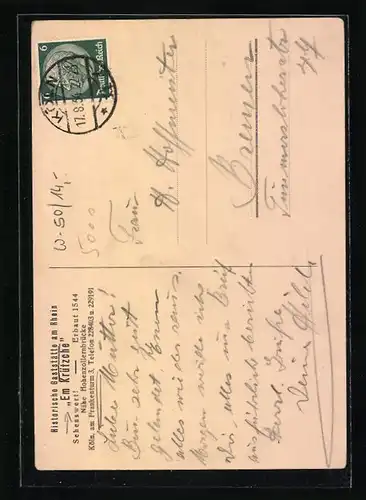 Historische Gaststätte am Rhein
„Em Krützche"
Sehenswert! Erbaut 1544
Nähe Hohenzollernbrücke
Köln, am Frankenturm 3, Telefon 228403 u. 229191
Liebe Mutter!
Bin sehr gut
gelandet.
alles wieder
Morgen werde ich
Dir alles im Brief
ausführlich berichten
Herzl. Grüße
Deine
W-50/14,-
5000
Frau
H. Hoffmeister
Bremen
6
Deutsches Reich
KÖLN
17.8.3